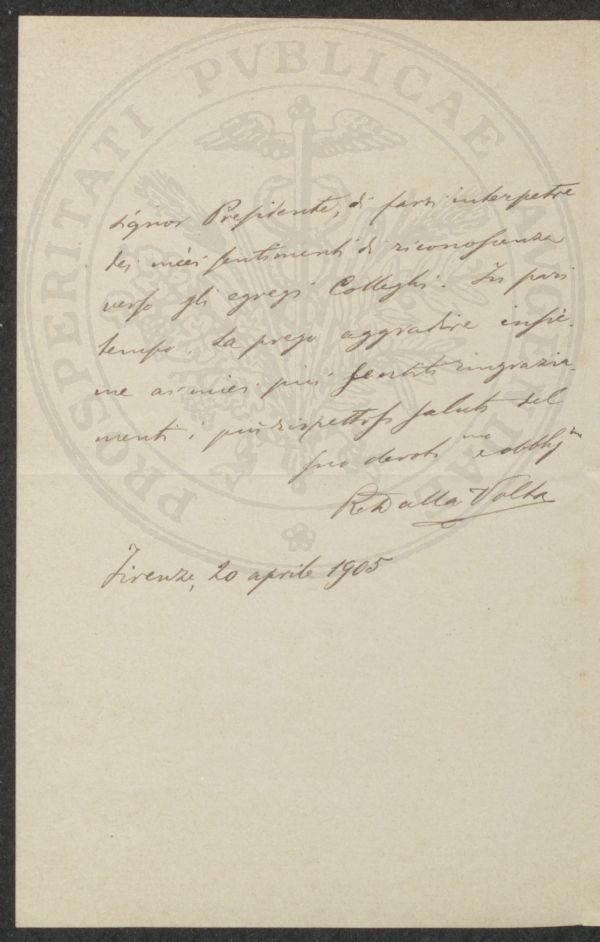 PROSPERITATI PVBLICAE
signor Presidente, di farsi interpetre
dei miei sentimenti di riconoscenza
verso gli egregi Colleghi. In pari
tempo, La prego aggradire insie-
me ai miei più sentiti ringrazia-
menti, i più rispettosi saluti del
suo devot.mo e obblig.mo
R. Dalla Volta
Firenze, 20 aprile 1905